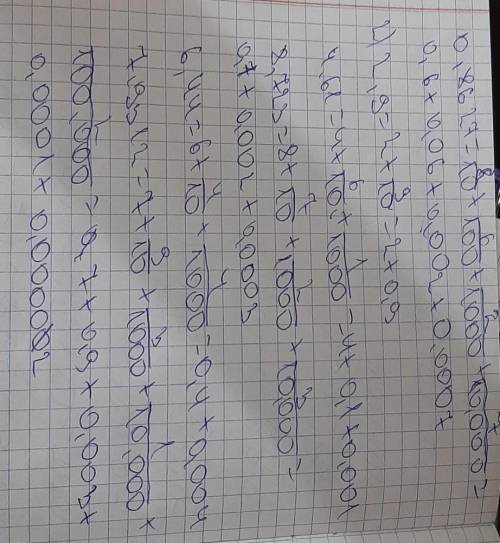 0,8627 = 8/10 × 6/100 × 2/1000 × 7/10,000 =
0,6 × 0,06 × 0,002 × 0,0007
2) 2,9 = 2 × 9/10 = 2 × 0,9
4,61 = 4 × 6/10 × 1/1000 = 4 × 0,1 × 0,001
8,723 = 8 × 7/10 × 2/1000 × 3/10,000 =
0,7 × 0,002 × 0,0003
6,44 = 6 × 4/10 × 4/1000 = 0,4 × 0,004
7,9312 = 7 × 9/10 × 3/1000 × 1/10,000 ×
2/100,000 = 7 × 0,9 × 0,003 ×
0,0001 × 0,000002